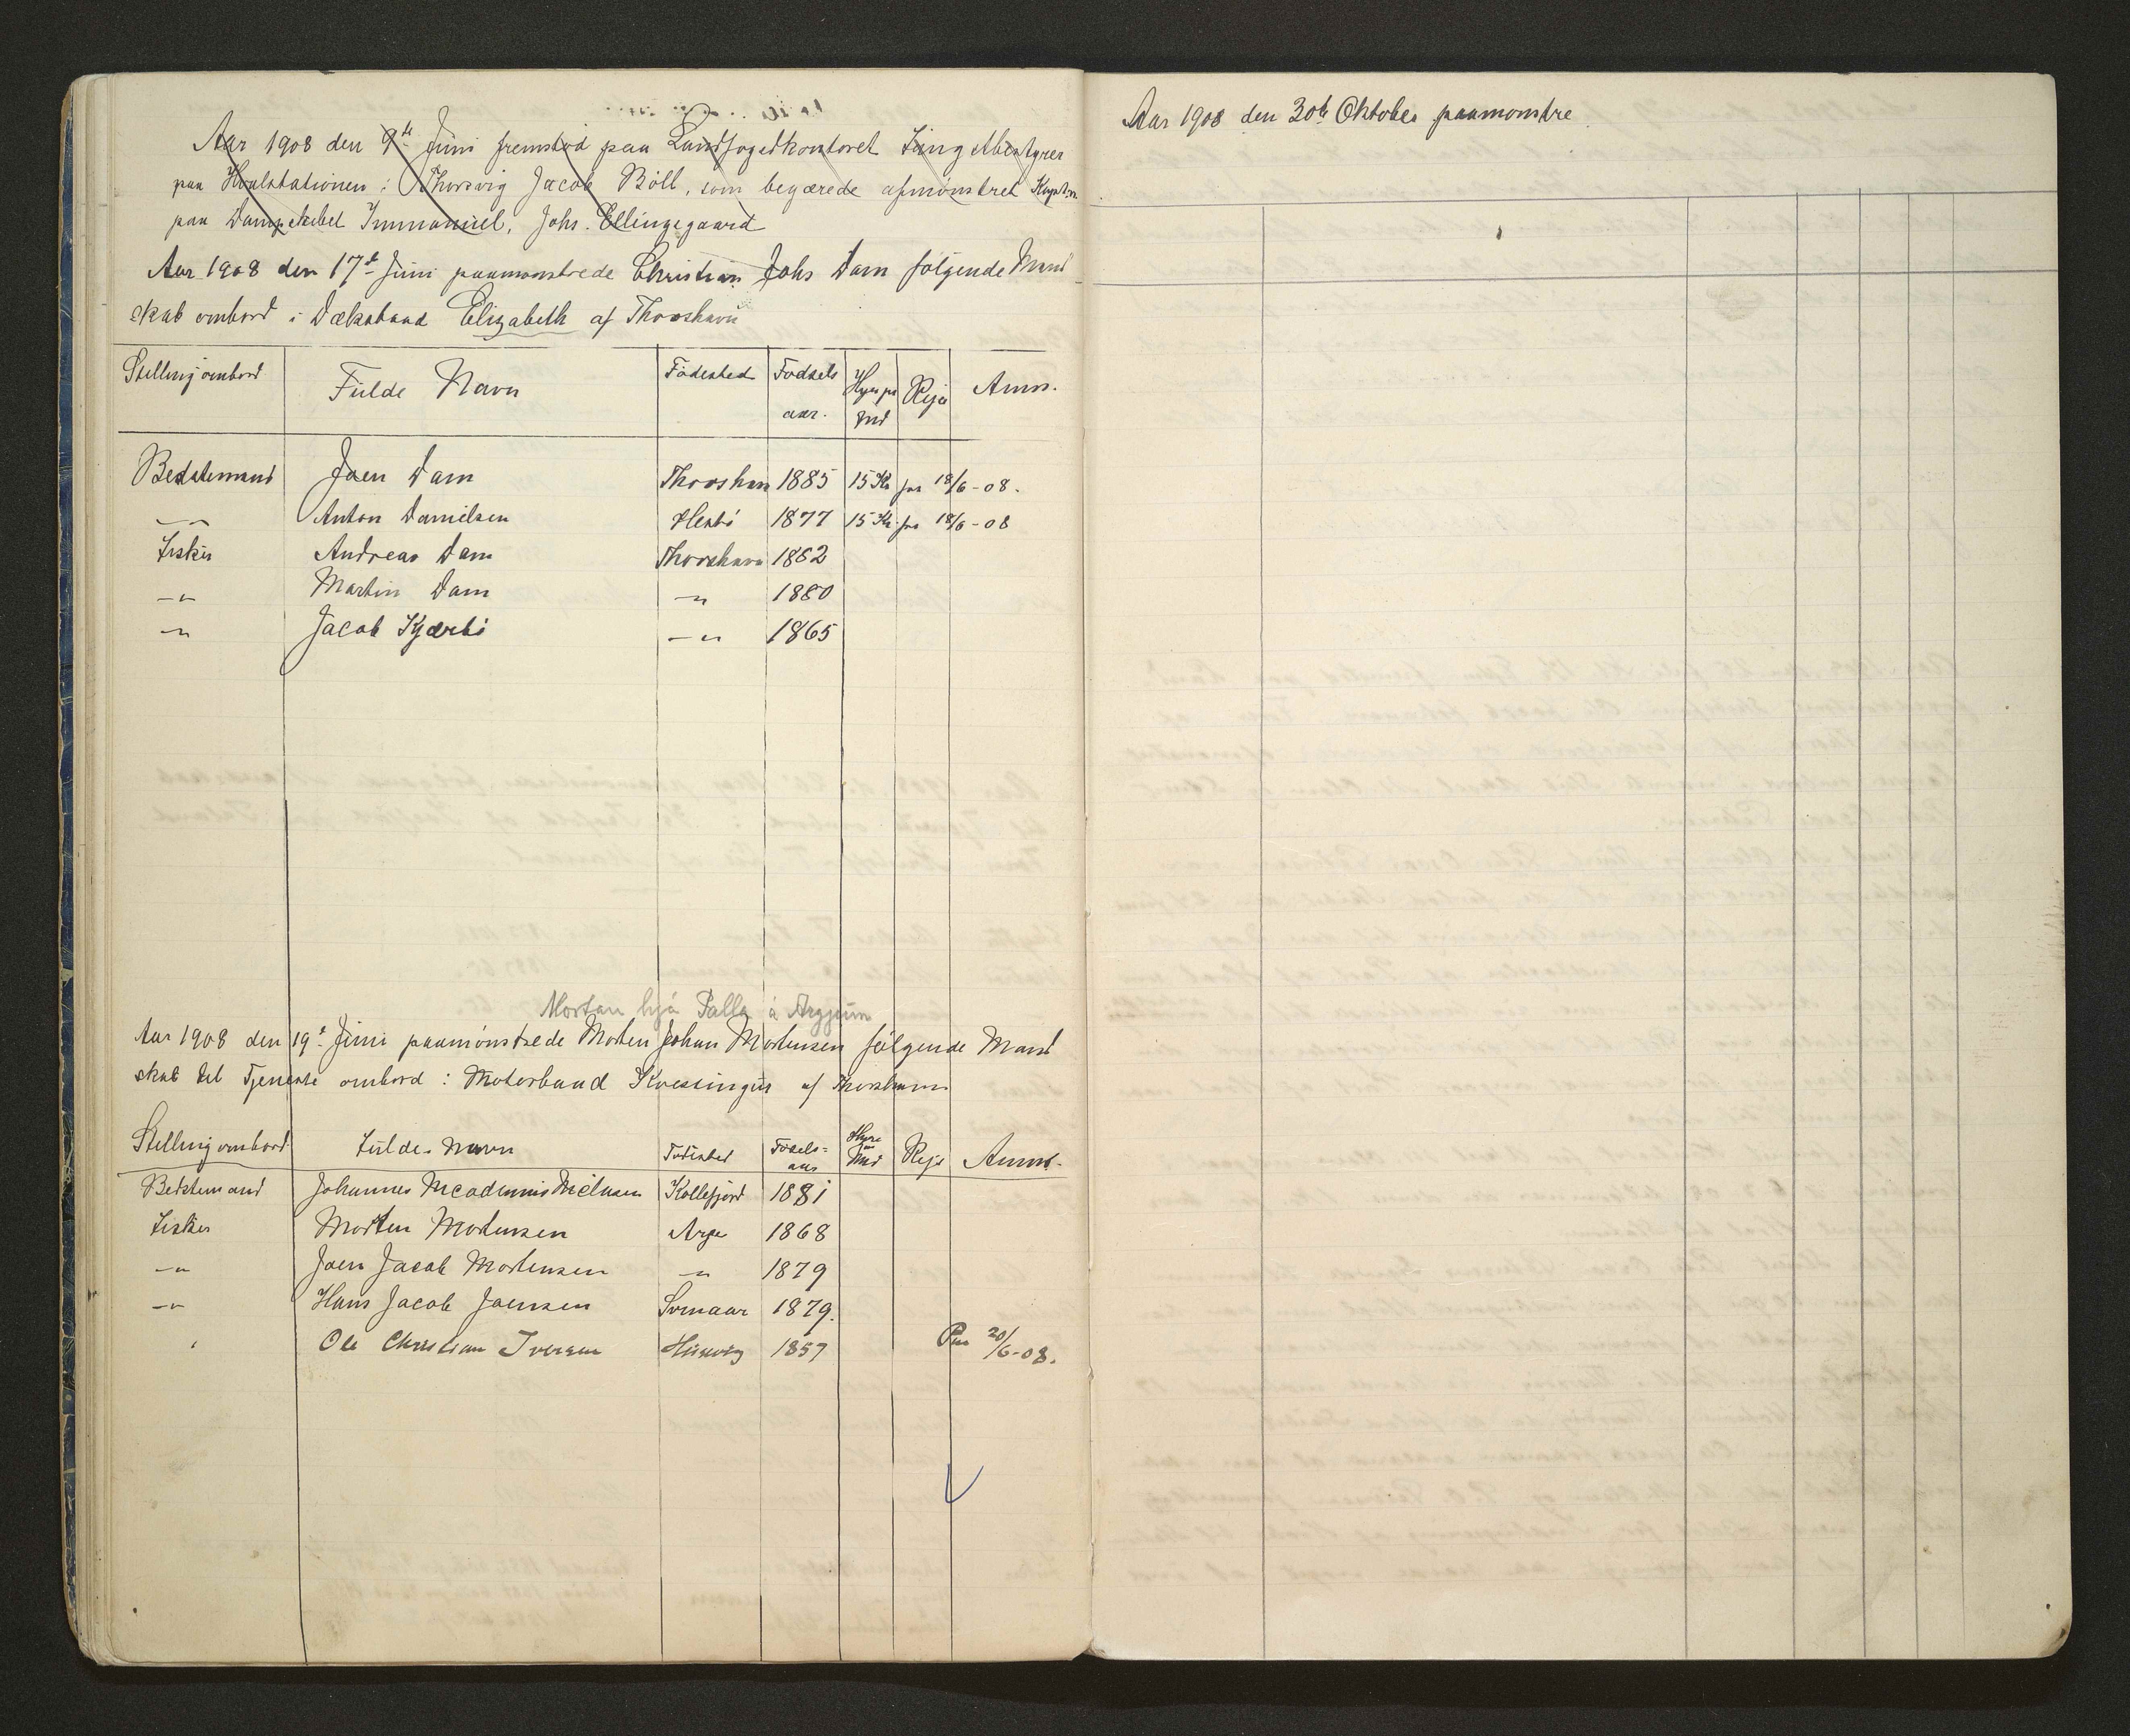 Aar 1908 den 9de Juni fremstod paa Landfogedkontoret
paa Hvalstationen i Thorsvig Jacob Böll, som begærede afmönstret Kaptn
paa Dampskibet Immanuel, Johs. Ellingsgaard
Aar 1908 den 17de Juni paamonstrede Christian Johs Dam følgende Mand
skab ombord i Dæksbaad Elizabeth af Thorshavn
Stilling ombord Fulde Navn Födested Fødsels aar. Hyre pr Md Rejse Anm.
Bedstemand Joen Dam Thorshavn 1885 15 Kr paa 18/6-08.
—"— Anton Danielsen Hestö 1877 15 Kr paa 18/6-08
Fisker Andreas Dam Thorshavn 1882
—"— Martin Dam —"— 1880
—"— Jacob Kjærbö —"— 1865
Mortan hjá Palla á Argjum
Aar 1908 den 19de Juni paamönstrede Morten Johan Mortensen følgende Mand
skab til Tjeneste ombord i Motorbaad Kvessingur af Thorshavn
Stilling ombord Fulde Navn Födested Födsels= aar Hyre Md Rejse Anm.
Bedstemand Johannes Nielsen Kollefjord 1881
Fisker Morten Mortensen Arge 1868
—"— Joen Jacob Mortensen —"— 1879
—"— Hans Jacob Joensen 1879.
" Ole Christian Iversen Husevig 1857 Paa 20/6-08.
Aar 1908 den 30te Oktober paamonstre